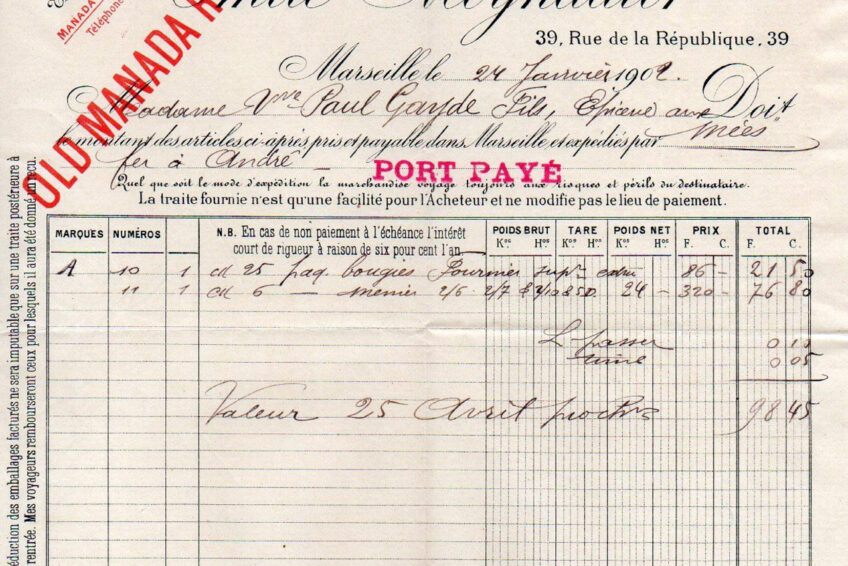 MANADA
Téléphone
OLD MANADA R
39, Rue de la République, 39
Marseille le 24 Janvier 1902.
Madame Vve Paul Gayde Fils, Epicerie aux Doit
Mées
le montant des articles ci-après, pris et payable dans Marseille et expédiés par
fer à André
PORT PAYÉ
Quel que soit le mode d'expédition la marchandise voyage toujours aux risques et périls du destinataire.
La traite fournie n'est qu'une facilité pour l'Acheteur et ne modifie pas le lieu de paiement.
MARQUES NUMÉROS N.B. En cas de non paiement à l'échéance l'intérêt court de rigueur à raison de six pour cent l'an. POIDS BRUT TARE POIDS NET PRIX TOTAL
Kos Hos Kos Hos Kos Hos F. C. F. C.
A 10 1 25 paq. bougies Fournier 86 — 21 50
11 1 6 — Menier 2/6 2/7 24 — 320 — 76 80
L. passer 0 10
timbre 0 05
Valeur 25 Avril prochn 98 45
duction des emballages facturés ne sera imputable que sur une traite postérieure à
rentrée. Mes voyageurs rembourseront ceux pour lesquels il aura été donné un reçu.